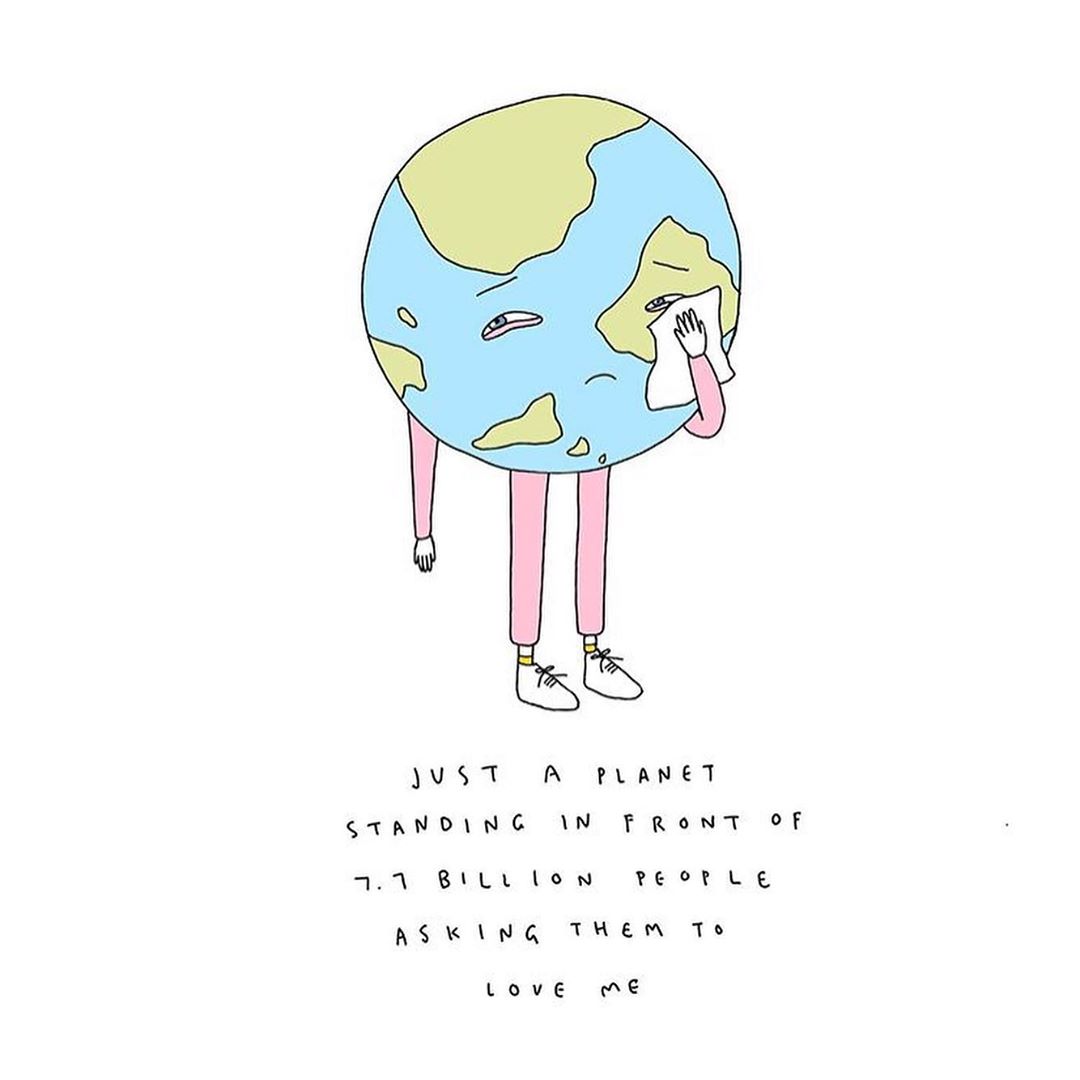 JUST A PLANET
STANDING IN FRONT OF
7.7 BILLION PEOPLE
ASKING THEM TO
LOVE ME